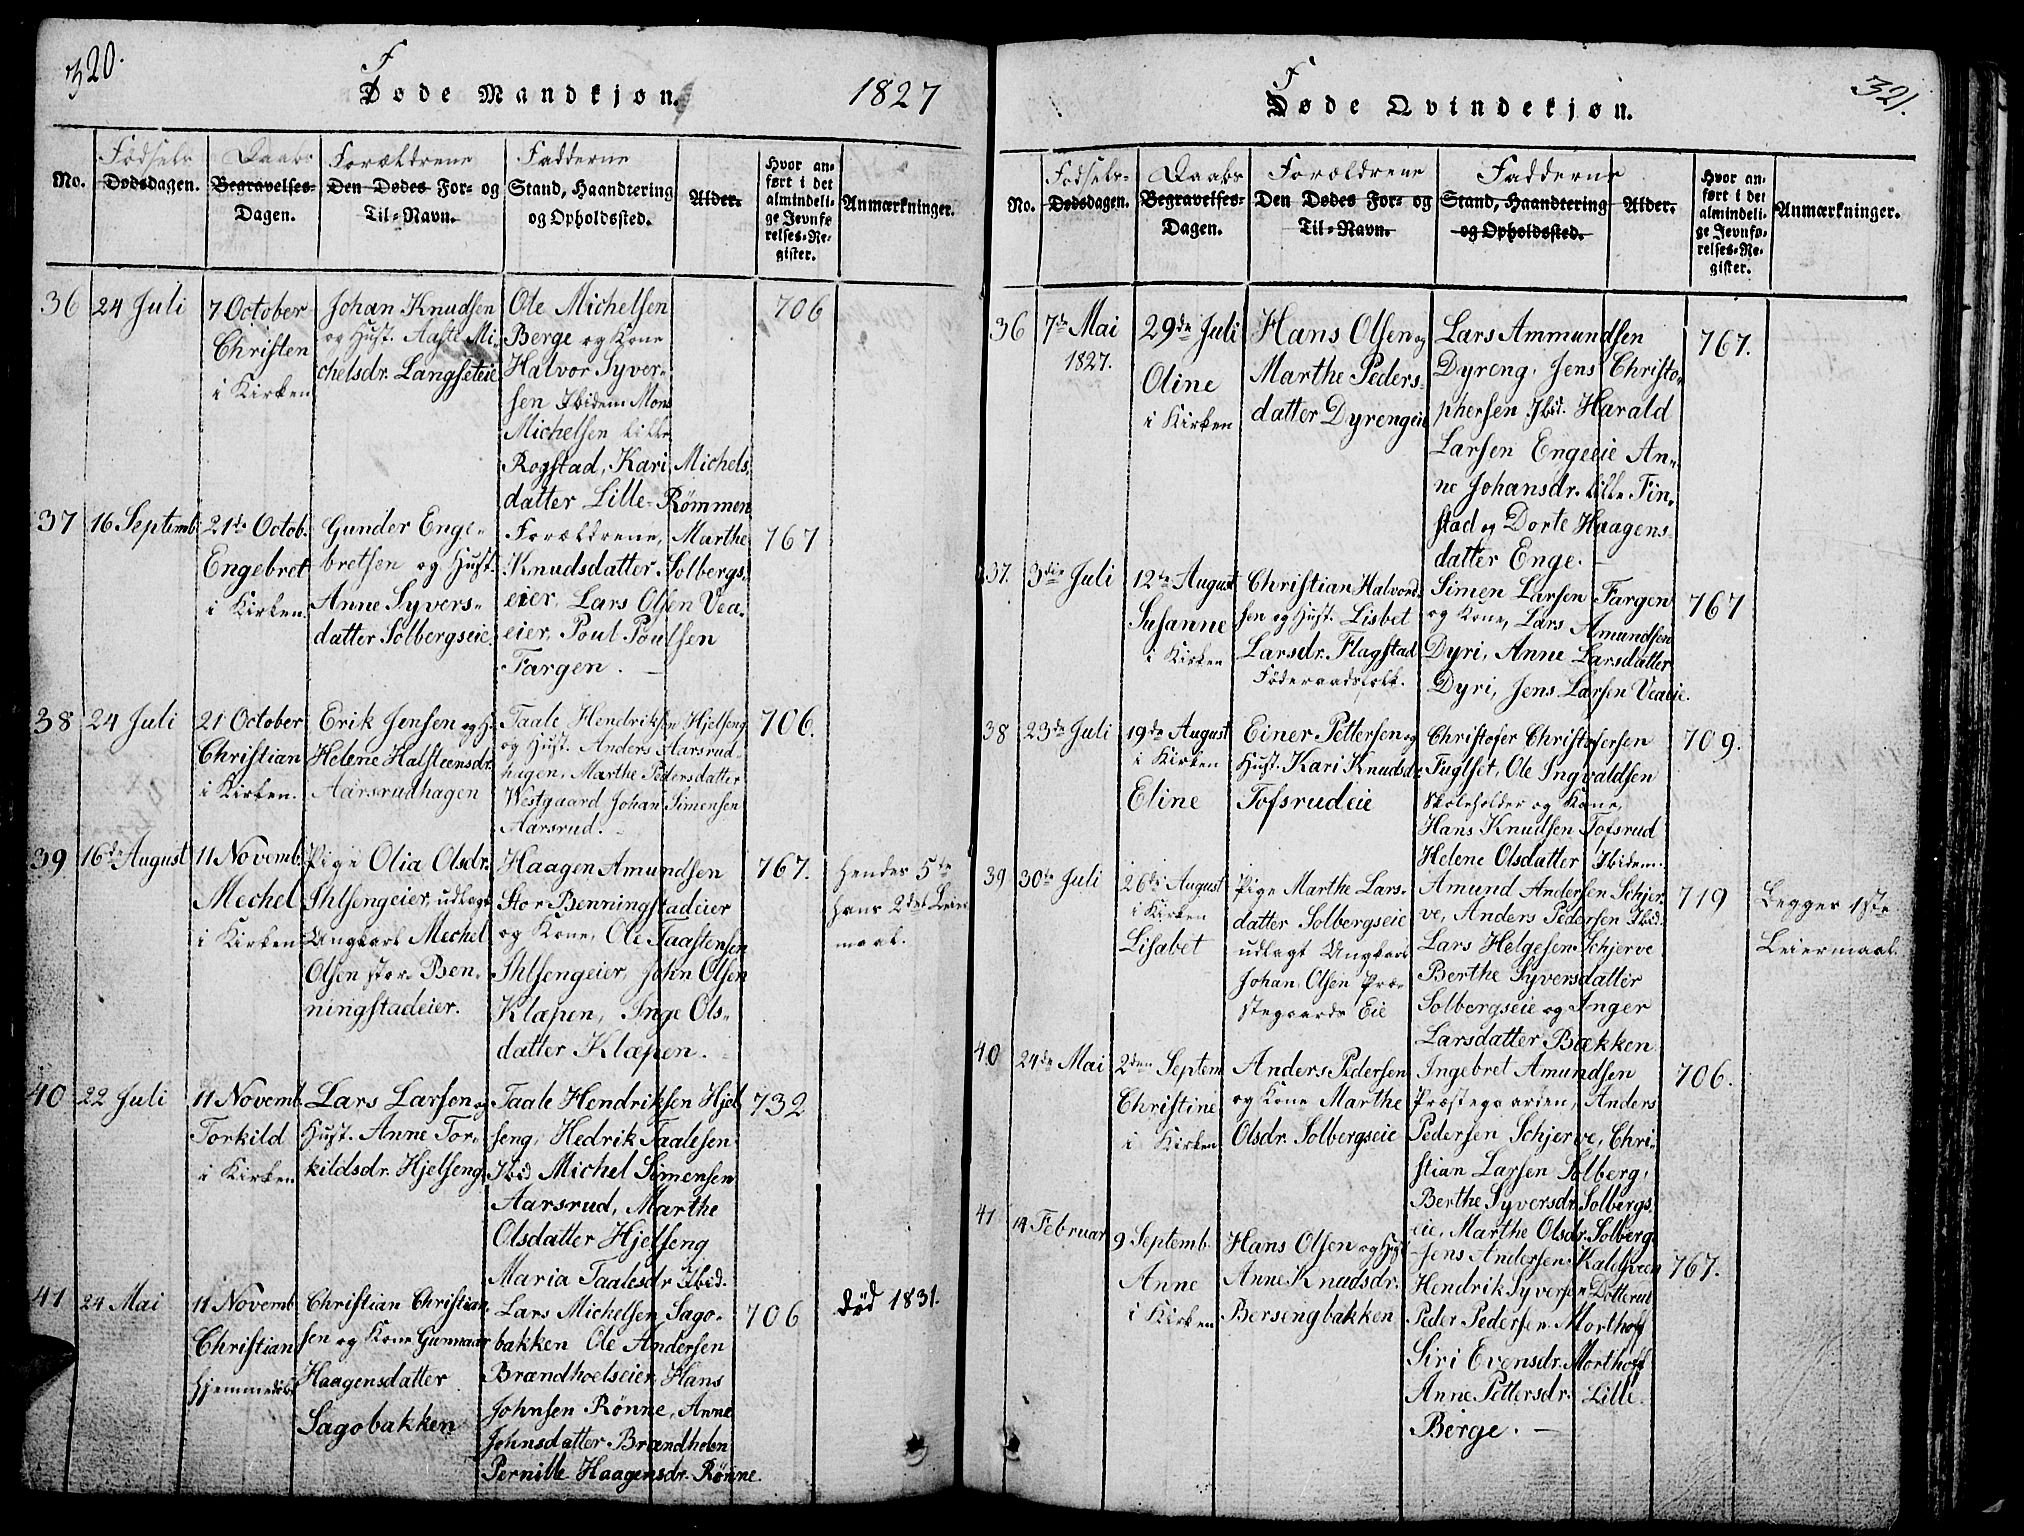 320.
Føde Mandkjøn.
1827
No.
Fødsels
Dødsdagen.
Daabs
Begravelses-
Dagen.
Forældrene
Den Dødes For- og
Til-Navn.
Fadderne
Stand, Haandtering
og Opholdssted.
Alder.
Hvor an-
ført i det
almindeli-
ge Jevnfø
relses-Re-
gister.
Anmærkninger.
36
24 Juli
7 October
Christen
i Kirken
Johan Knudsen
og Hust. Aaste Mi
chelsdr. Langseteie
Ole Michelsen
Berge og Kone
Halvor Syver-
sen Ibidem Mons
Michelsen Lille
Rogstad, Kari Michels
datter Lille-Rømmen
706
37
16 Septemb.
21de Octob.
Engebret
i Kirken.
Gunder Enge-
bretsen og Hust.
Anne Syvers-
datter Solbergseie
Forældrene, Marthe
Knudsdatter Solbergs-
eier, Lars Olsen Vea-
eier, Poul Poulsen
Fargen. —
767
38
24 Juli
21 October
Christian
i Kirken.
Erik Jensen og H.
Helene Halsteensdr.
Aarsrudhagen
Taale Hendriksen Hjelseng
og Hust. Anders Aarsrud-
hagen, Marthe Pedersdatter
Westgaard Johan Simensen
Aarsrud. —
706.
39
16de August
11 Novemb.
Mechel
i Kirken
Pige Olia Olsdr.
Ihlsengeier, udlagt
Ungkarl Mechel
Olsen stor Ben-
ningstadeier.
Haagen Amundsen
Stor Benningstadeier
og Kone, Ole Taastensen
Ihlsengeier, John Olsen
Klæpen, Inge Ols-
datter Klæpen.
767.
hendes 5te
hans 2det Leier
maal.
40
22 Juli
11 Novemb.
Torkild
i Kirken
Lars Larsen og
Hust. Anne Tor-
kildsdr. Hjelseng
Taale Hendriksen Hjel
seng, Hedrik Taalesen
Ibid Michel Simensen
Aarsrud, Marthe
Olsdatter Hjelseng
Maria Taalesdr Ibid.
732
41
24 Mai
11 Novemb.
Christian
hjemmedøbt
Christian Christian
sen og Kone Gunnaar
Haagensdatter
Sagobakken
Lars Mickelsen Sago-
bakken Ole Andersen
Brændhoelseier, Hans
Johnsen Rönne, Anne
Johnsdatter Brændholen
Pernille Haagensdr. Rönne.
706
død 1831.
321.
Føde Qvindekjøn.
No.
Fødsels-
Dødsdagen.
Daabs
Begravelses-
Dagen.
Forældrene
Den Dødes For- og
Til-Navn.
Fadderne
Stand, Haandtering
og Opholdssted.
Alder.
Hvor an-
ført i det
almindeli-
ge Jevnfø-
relses-Re-
gister.
Anmærkninger.
36
7de Mai
1827.
29de Juli
Oline
i Kirken
Hans Olsen og
Marthe Peders-
datter Dyrengeie
Lars Ammundsen
Dyreng, Jens Christo-
phersen Ibid. Harald
Larsen Engeeie An-
ne Johansdr. Lille Fin-
stad og Dorte Haagens-
datter Enge. —
767.
37.
3die Juli
12te August
Susanne
i Kirken
Christian Halvord-
sen og Hust. Lisbet
Larsdr. Flagstad
Föderaadsfolk.
Simen Larsen Fargen
og Kone, Lars Amundsen
Dyri, Anne Larsdatter
Dyri, Jens Larsen Veaeie.
767
38
23de Juli
19de August
i Kirken
Eline
Einer Pettersen og
Hust. Kari Knudsdr.
Tofsrudeie
Christofer Christofersen
Fuglset, Ole Ingvaldsen
Skoleholder og Kone,
Hans Knudsen Tofsrud
Helene Olsdatter Ibidem.
709.
39
30te Juli
26de August
i Kirken
Lisabet
Pige Marthe Lars-
datter Solbergseie
udlagt Ungkarl
Johan Olsen Præ-
stegaards Eie
Amund Andersen Schjer-
ve, Anders Pedersen Ibid.
Lars Helgesen Schjerve
Berthe Syversdatter
Solbergseie og Inger
Larsdatter Bækken
719
Begges 1ste
Leiermaal.
40
24de Mai
2den Septem
Christine
i Kirken
Anders Pedersen
og Kone Marthe
Olsdr. Solbergseie
Ingebret Amundsen
Præstegaarden, Anders
Pedersen Schjerve, Chri-
stian Larsen Solberg,
Berthe Syversdr. Solbergs
eie, Marthe Olsdr. Solbergs
706.
41
14 Februar
9 Septemb.
Anne
i Kirken
Hans Olsen og Hust
Anne Knudsdr.
Bersengbakken
Jens Andersen Kaldsveen
Hendrik Syversen Dotterud
Peder Pedersen Morthoff
Siri Evensdr. Morthoff
Anne Pettersdr. Lille
Berge. —
767.